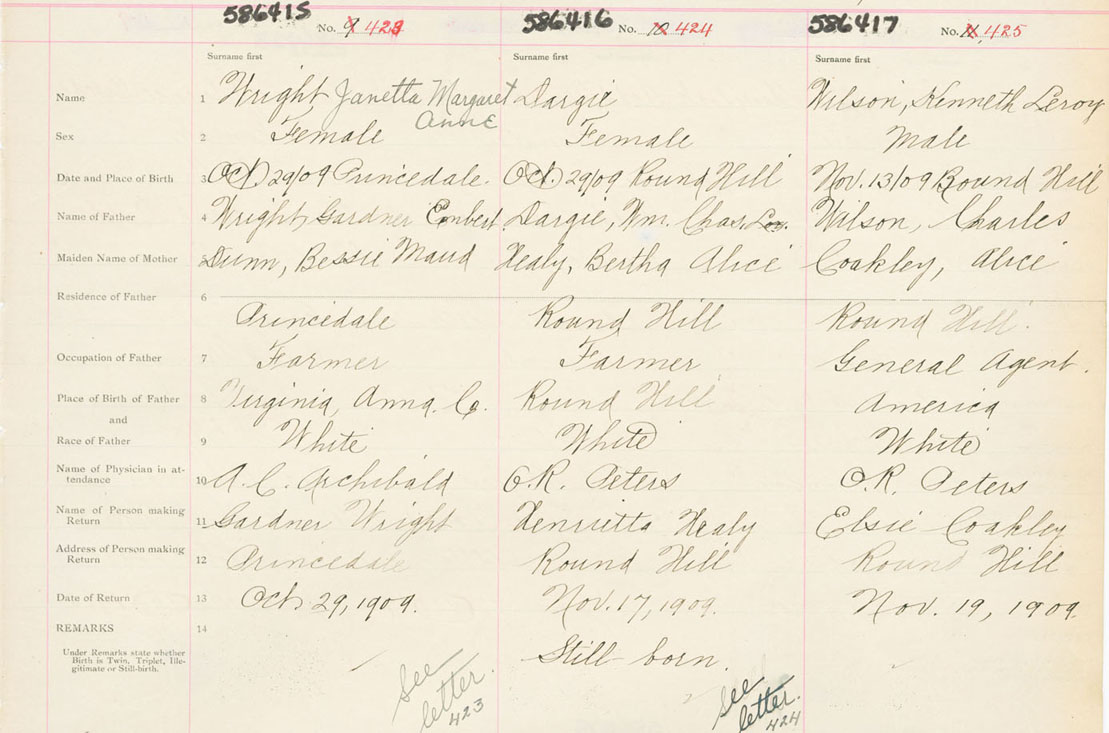 586415 586416 586417
No. 9 423 No. 10 424 No. 11 425
Surname first Surname first Surname first
Name 1 Wright, Janetta Margaret Dargie Wilson, Kenneth Leroy
Anne
Sex 2 Female Female Male
Date and Place of Birth 3 Oct. 29/09 Princedale. Oct. 29/09 Round Hill Nov. 13/09 Round Hill
Name of Father 4 Wright, Gardner Dargie, Wm. Chas. Wilson, Charles
Maiden Name of Mother 5 Dunn, Bessie Maud Healy, Bertha Alice Coakley, Alice
Residence of Father 6
Princedale Round Hill Round Hill.
Occupation of Father 7 Farmer Farmer General Agent.
Place of Birth of Father 8 Virginia, Anna. Co. Round Hill America
and
Race of Father 9 White White White
Name of Physician in at-
tendance 10 A. C. Archibald O.R. Peters O.R. Peters
Name of Person making
Return 11 Gardner Wright Henrietta Healy Elsie Coakley
Address of Person making
Return 12 Princedale Round Hill Round Hill
Date of Return 13 Oct. 29, 1909. Nov. 17, 1909. Nov. 19, 1909
REMARKS 14
Under Remarks state whether
Birth is Twin, Triplet, Ille-
gitimate or Still-birth.
Still born.
See See
letter. letter.
423 424